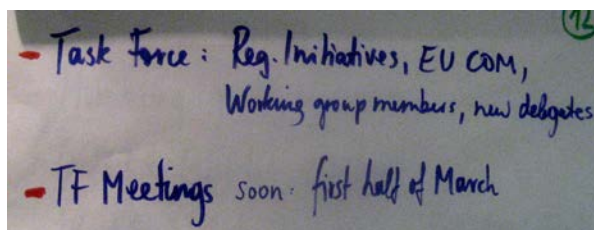 12
- Task Force: Reg. Initiatives, EU COM,
Working group members, new delegates
- TF Meetings soon: first half of March